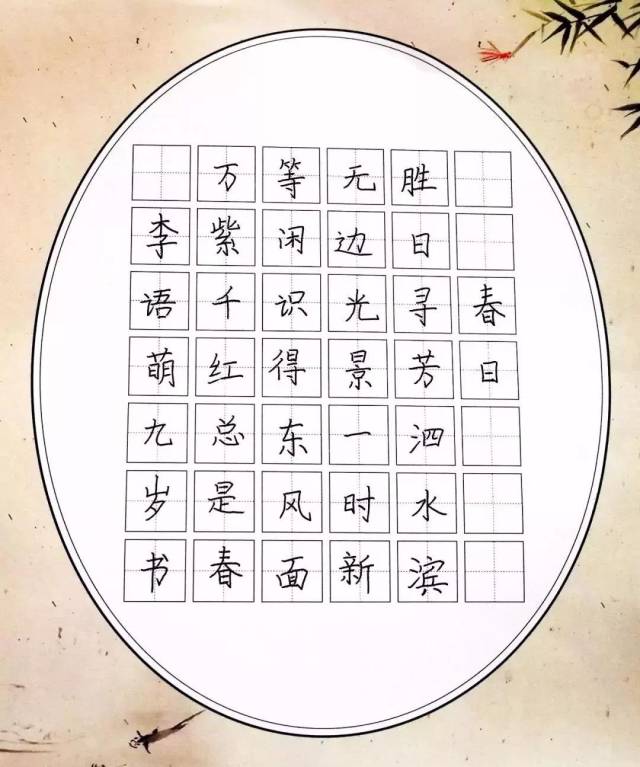 春日
胜日寻芳泗水滨
无边光景一时新
等闲识得东风面
万紫千红总是春
李语萌九岁书